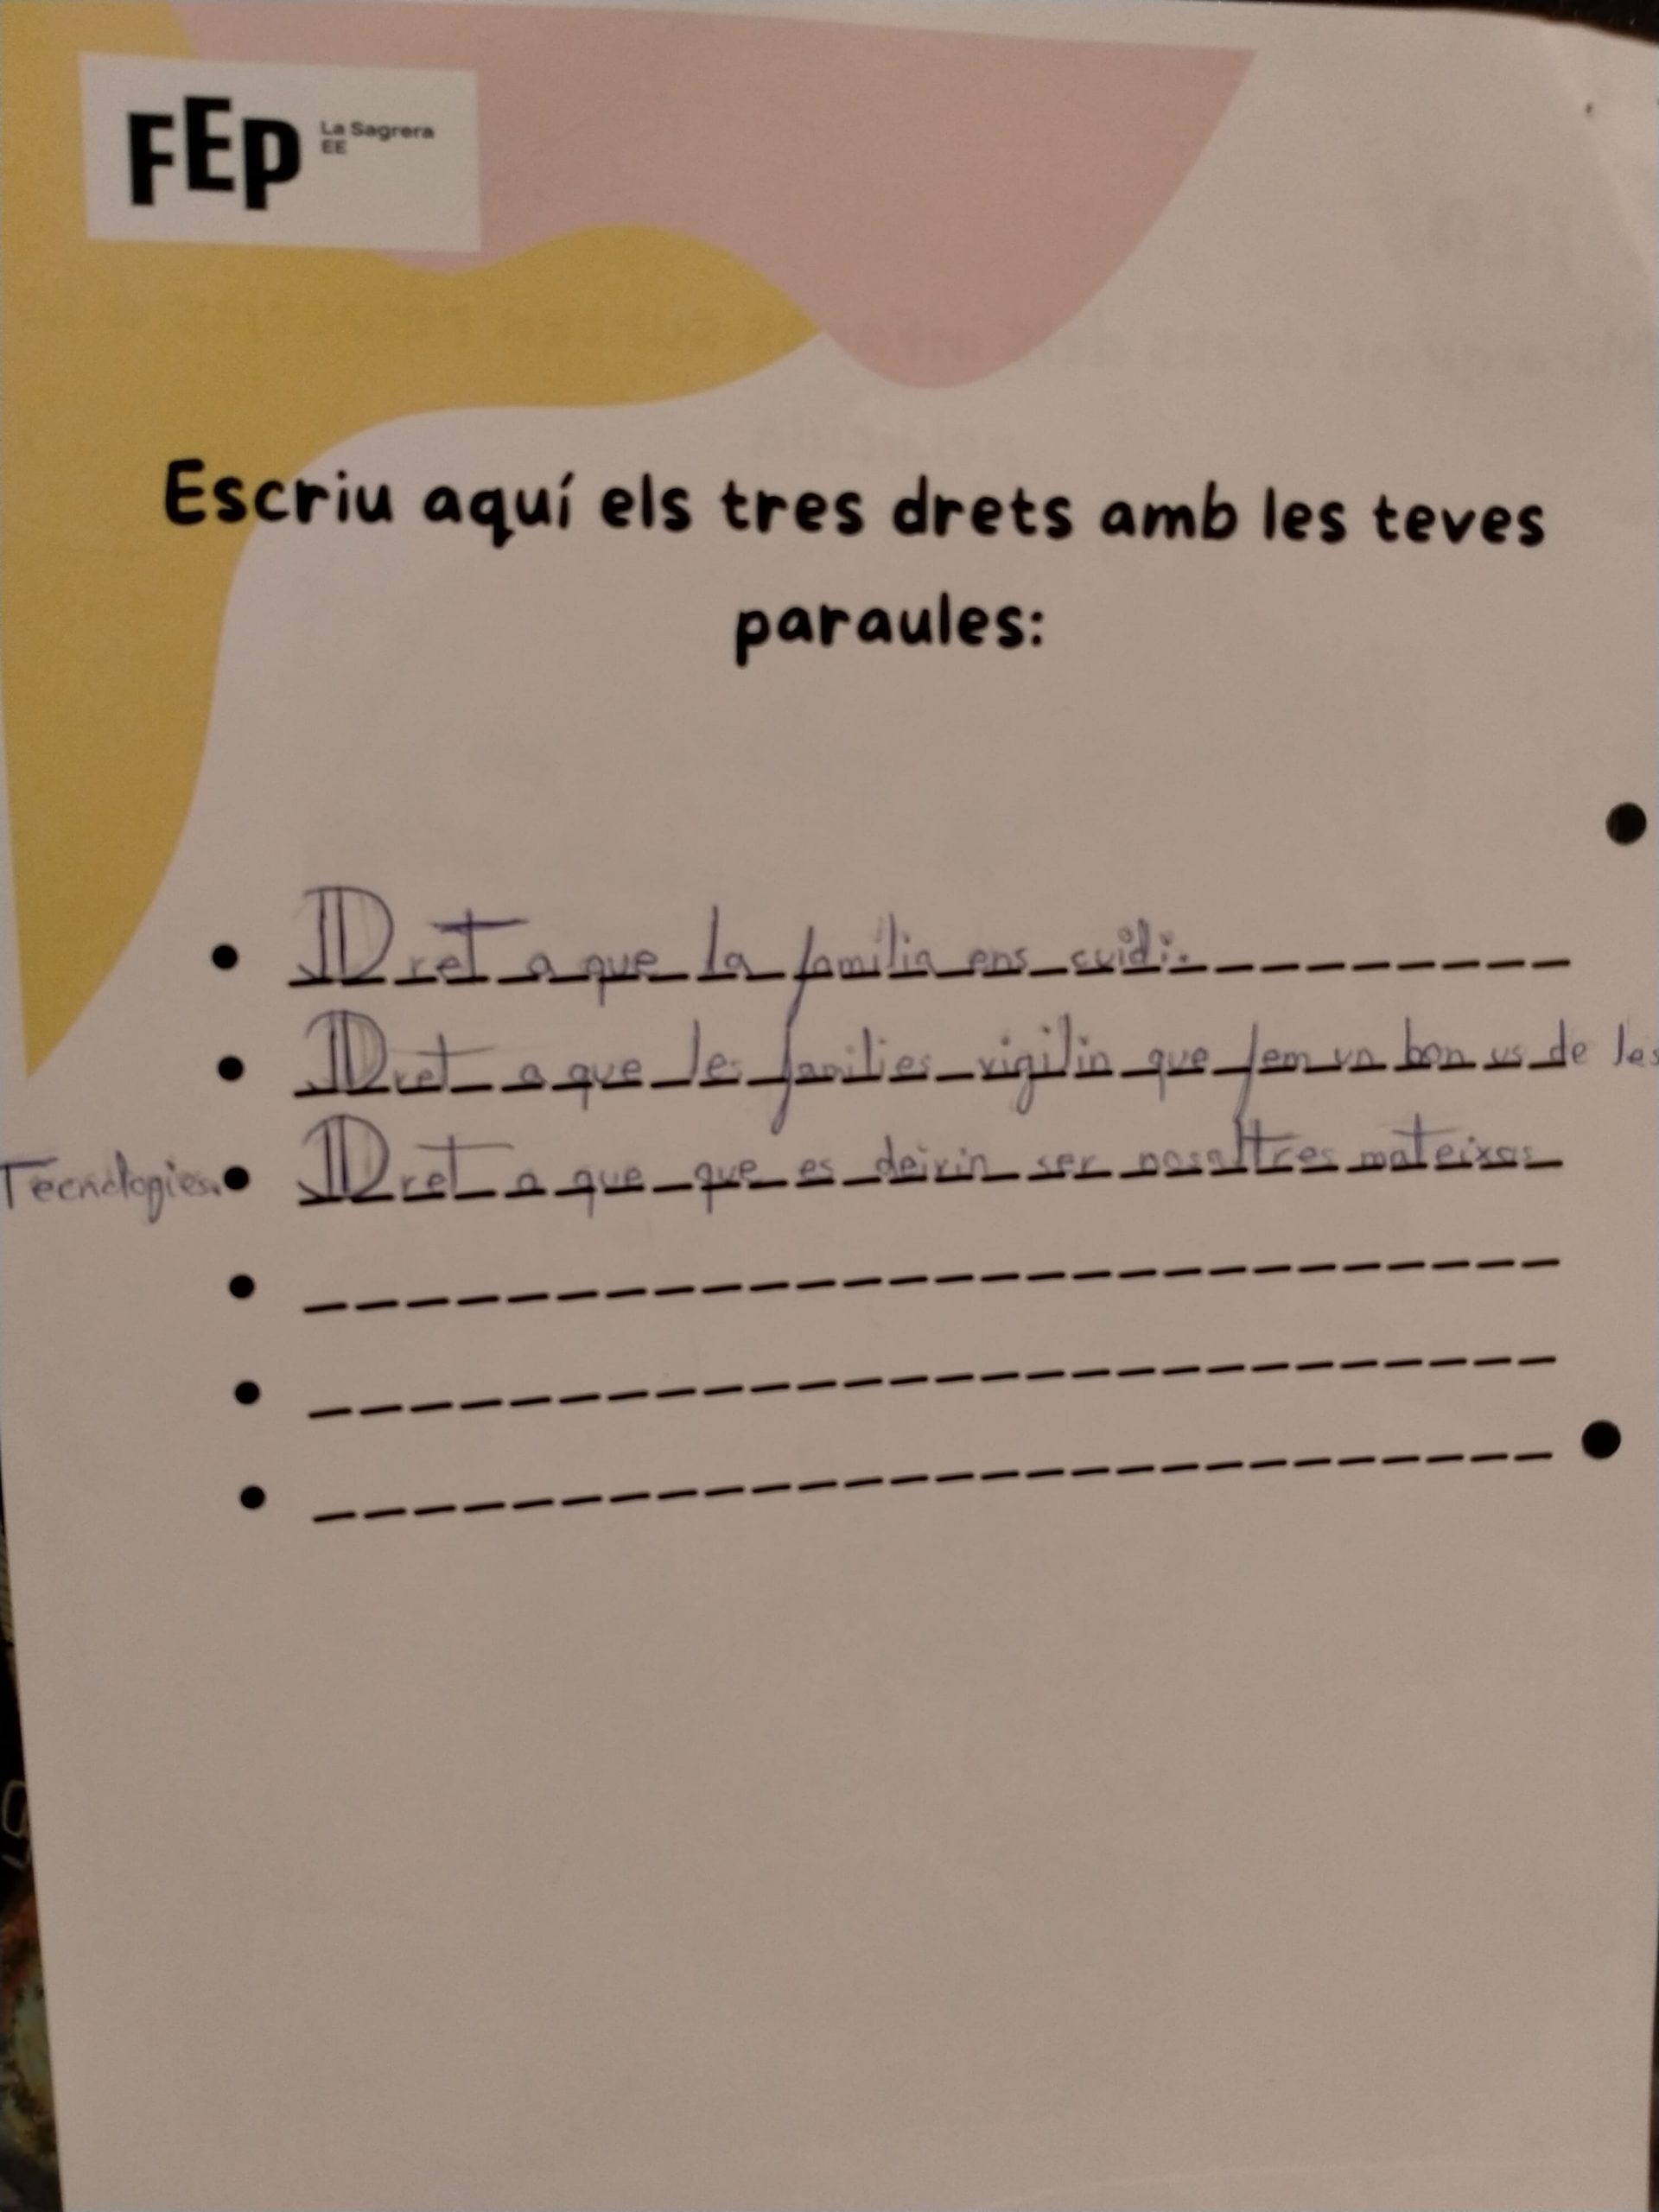 FEP La Sagrera
EE
Escriu aquí els tres drets amb les teves
paraules:
• Dret a que la família ens cuidi.
• Dret a que les famílies vigilin que fem un bon us de les
Tecnologies. • Dret a que que es deixin ser nosaltres mateixos
•
•
•